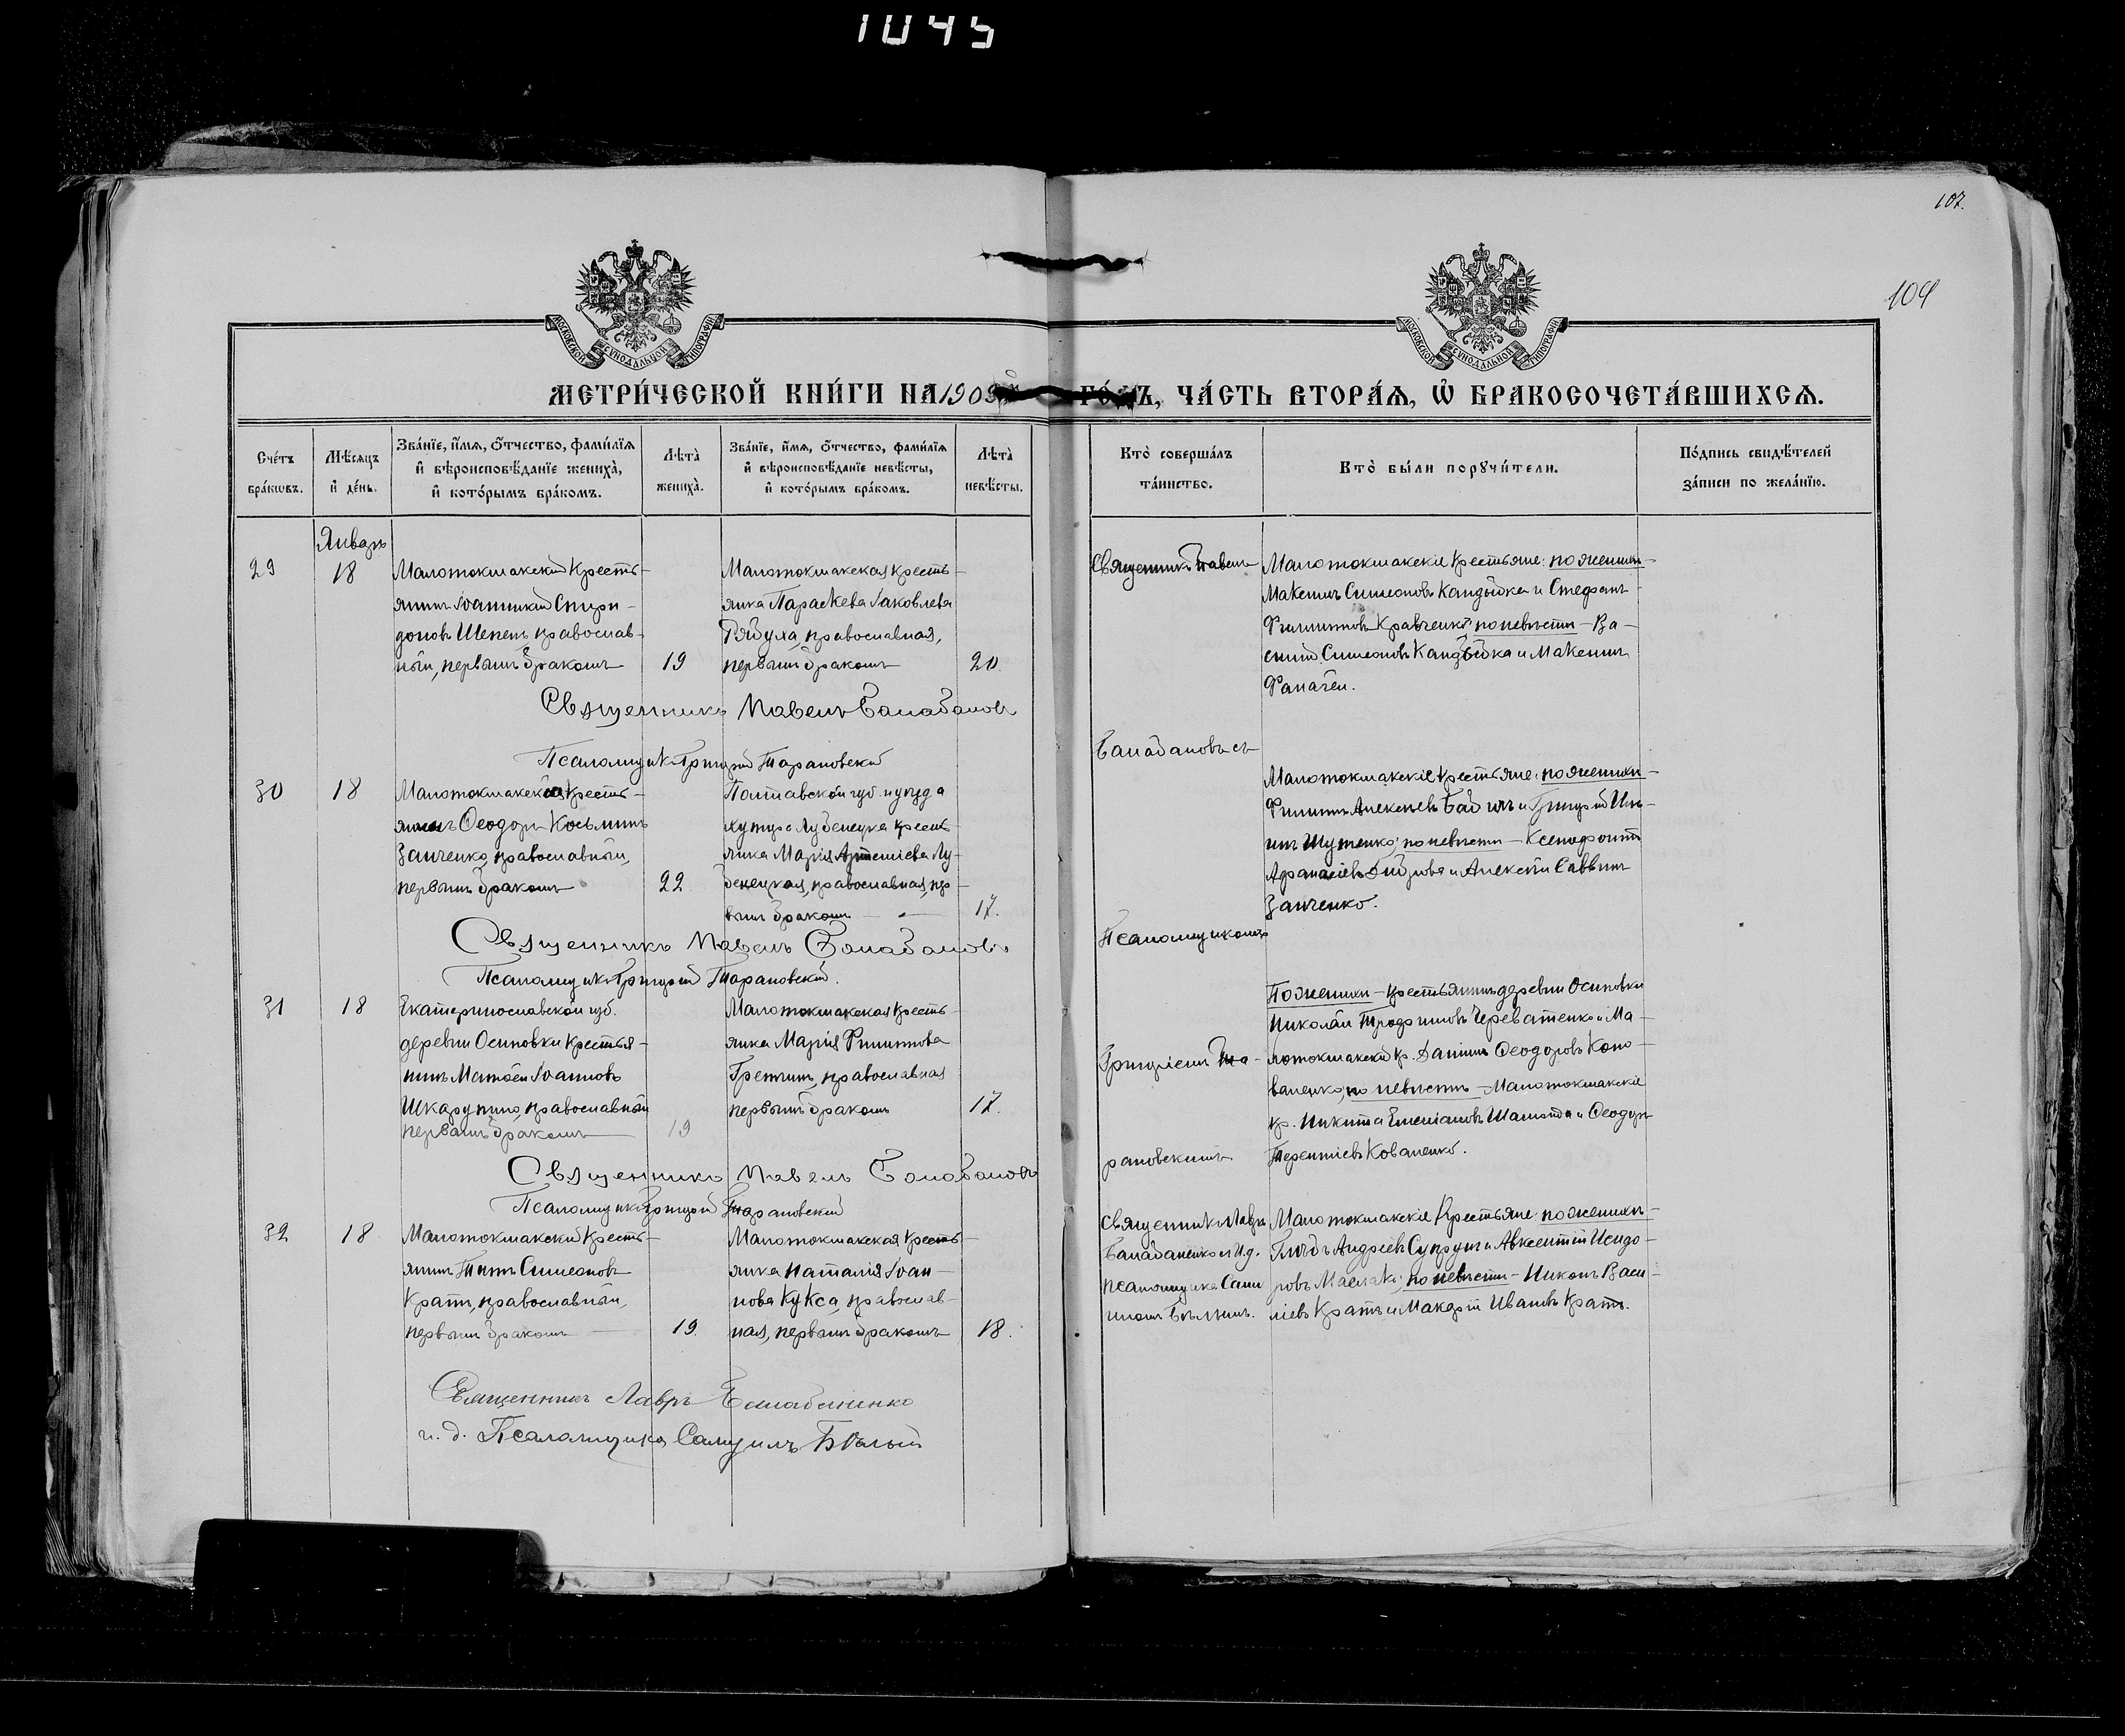 1045
107.
104
МОСКОВСКОЙ СѴНОДАЛЬНОЙ ТИПОГРАФІИ
МОСКОВСКОЙ СѴНОДАЛЬНОЙ ТИПОГРАФІИ
МЕТРИ́ЧЕСКОЙ КНИ́ГИ НА 1909 ГО́ДЪ, ЧА́СТЬ ВТОРА́Ѧ, Ѡ БРАКОСОЧЕТА́ВШИХСѦ.
Сче́тъ бра́кѡвъ.
Мѣ́сяцъ и де́нь.
Зва́нїе, и́мѧ, ѻ́тчество, фами́лїѧ и вѣроисповѣ́данїе жениха̀, и кото́рымъ бра́комъ.
Лѣта̀ жениха̀.
Зва́нїе, и́мѧ, ѻ́тчество, фами́лїѧ и вѣроисповѣ́данїе невѣ́сты, и кото́рымъ бра́комъ.
Лѣта̀ невѣ́сты.
Кто̀ соверша́лъ та́инство.
Кто̀ бы́ли порꙋчи́тели.
По́дпись свидѣ́телей за́писи по жела́нїю.
Январь
29
18
Малотокмакскій кресть-
янинъ Іоанникій Спири-
доновъ Шепель, православ-
ный, первымъ бракомъ
19
Малотокмакская кресть-
янка Параскева Іаковлева
Рябуха, православная,
первымъ бракомъ
20.
Священникъ Павелъ
Малотокмакскіе крестьяне: по женихѣ-
Максимъ Симеоновъ Кандыбка и Стефанъ
Филипповъ Кравченко; по невѣстѣ - Ва-
силій Симеоновъ Кандыбка и Максимъ
Священникъ Павелъ Балабановъ
Псаломщикъ Григорій Тарановскій
Балабановъ съ
30
18
Малотокмакскій кресть-
янинъ Ѳеодоръ Косьминъ
Заиченко, православный,
первымъ бракомъ
22.
Полтавской губ. и уѣзда
хутора Лубенецка кресть-
янка Марія Артеміева Лу-
бенецкая, православная, пер-
вымъ бракомъ
17.
Малотокмакскіе крестьяне: по женихѣ-
Филиппъ Алексѣевъ и Григорій Иль-
инъ Шутенко; по невѣстѣ - Ксенофонтъ
Аѳанасіевъ и Алексѣй Саввинъ
Заиченко.
Священникъ Павелъ Балабановъ
Псаломщикъ Григорій Тарановскій.
Псаломщикомъ
31
18
Екатеринославской губ.
деревни Осиповки крестья-
нинъ Матѳей Іоанновъ
Шкарупило, православный
первымъ бракомъ
19
Малотокмакская кресть-
янка Марія Филиппова
Гречинъ, православная
первымъ бракомъ
17.
Григоріемъ Та-
рановскимъ
По женихѣ - крестьянинъ деревни Осиповки
Николай Трофимовъ Череватенко и Ма-
лотокмакскій кр. Даніилъ Ѳеодоровъ Коно-
валенко; по невѣстѣ - Малотокмакскіе
кр. Никита Емеліановъ Шаповал и Ѳеодоръ
Терентіевъ Коваленко.
Священникъ Павелъ Балабановъ
Псаломщикъ Григорій Тарановскій
32
18
Малотокмакскій кресть-
янинъ Титъ Симеоновъ
Кратъ, православный,
первымъ бракомъ
19.
Малотокмакская кресть-
янка Наталія Іоан-
нова Кукса, православ-
ная, первымъ бракомъ
18.
Священникъ Лавръ
Балабаненко съ И.д.
псаломщика Саму
иломъ Бѣлымъ.
Малотокмакскіе крестьяне: по женихѣ-
Глѣбъ Андреевъ Супрунъ и Авксентій Исидо-
ровъ Маслакъ; по невѣстѣ - Никонъ Васи-
ліевъ Кратъ и Макарій Ивановъ Кратъ.
Священникъ Лавръ Балабаненко
и. д. Псаломщика Самуилъ Бѣлый